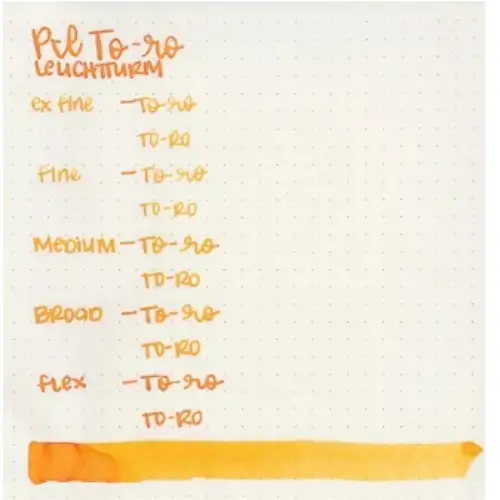 Pil To-ro
LEUCHTTURM
ex fine - To-ro
TO-RO
fine - To-ro
TO-RO
MEDIUM - To-ro
TO-RO
BROAD - To-ro
TO-RO
flex - To-ro
TO-RO